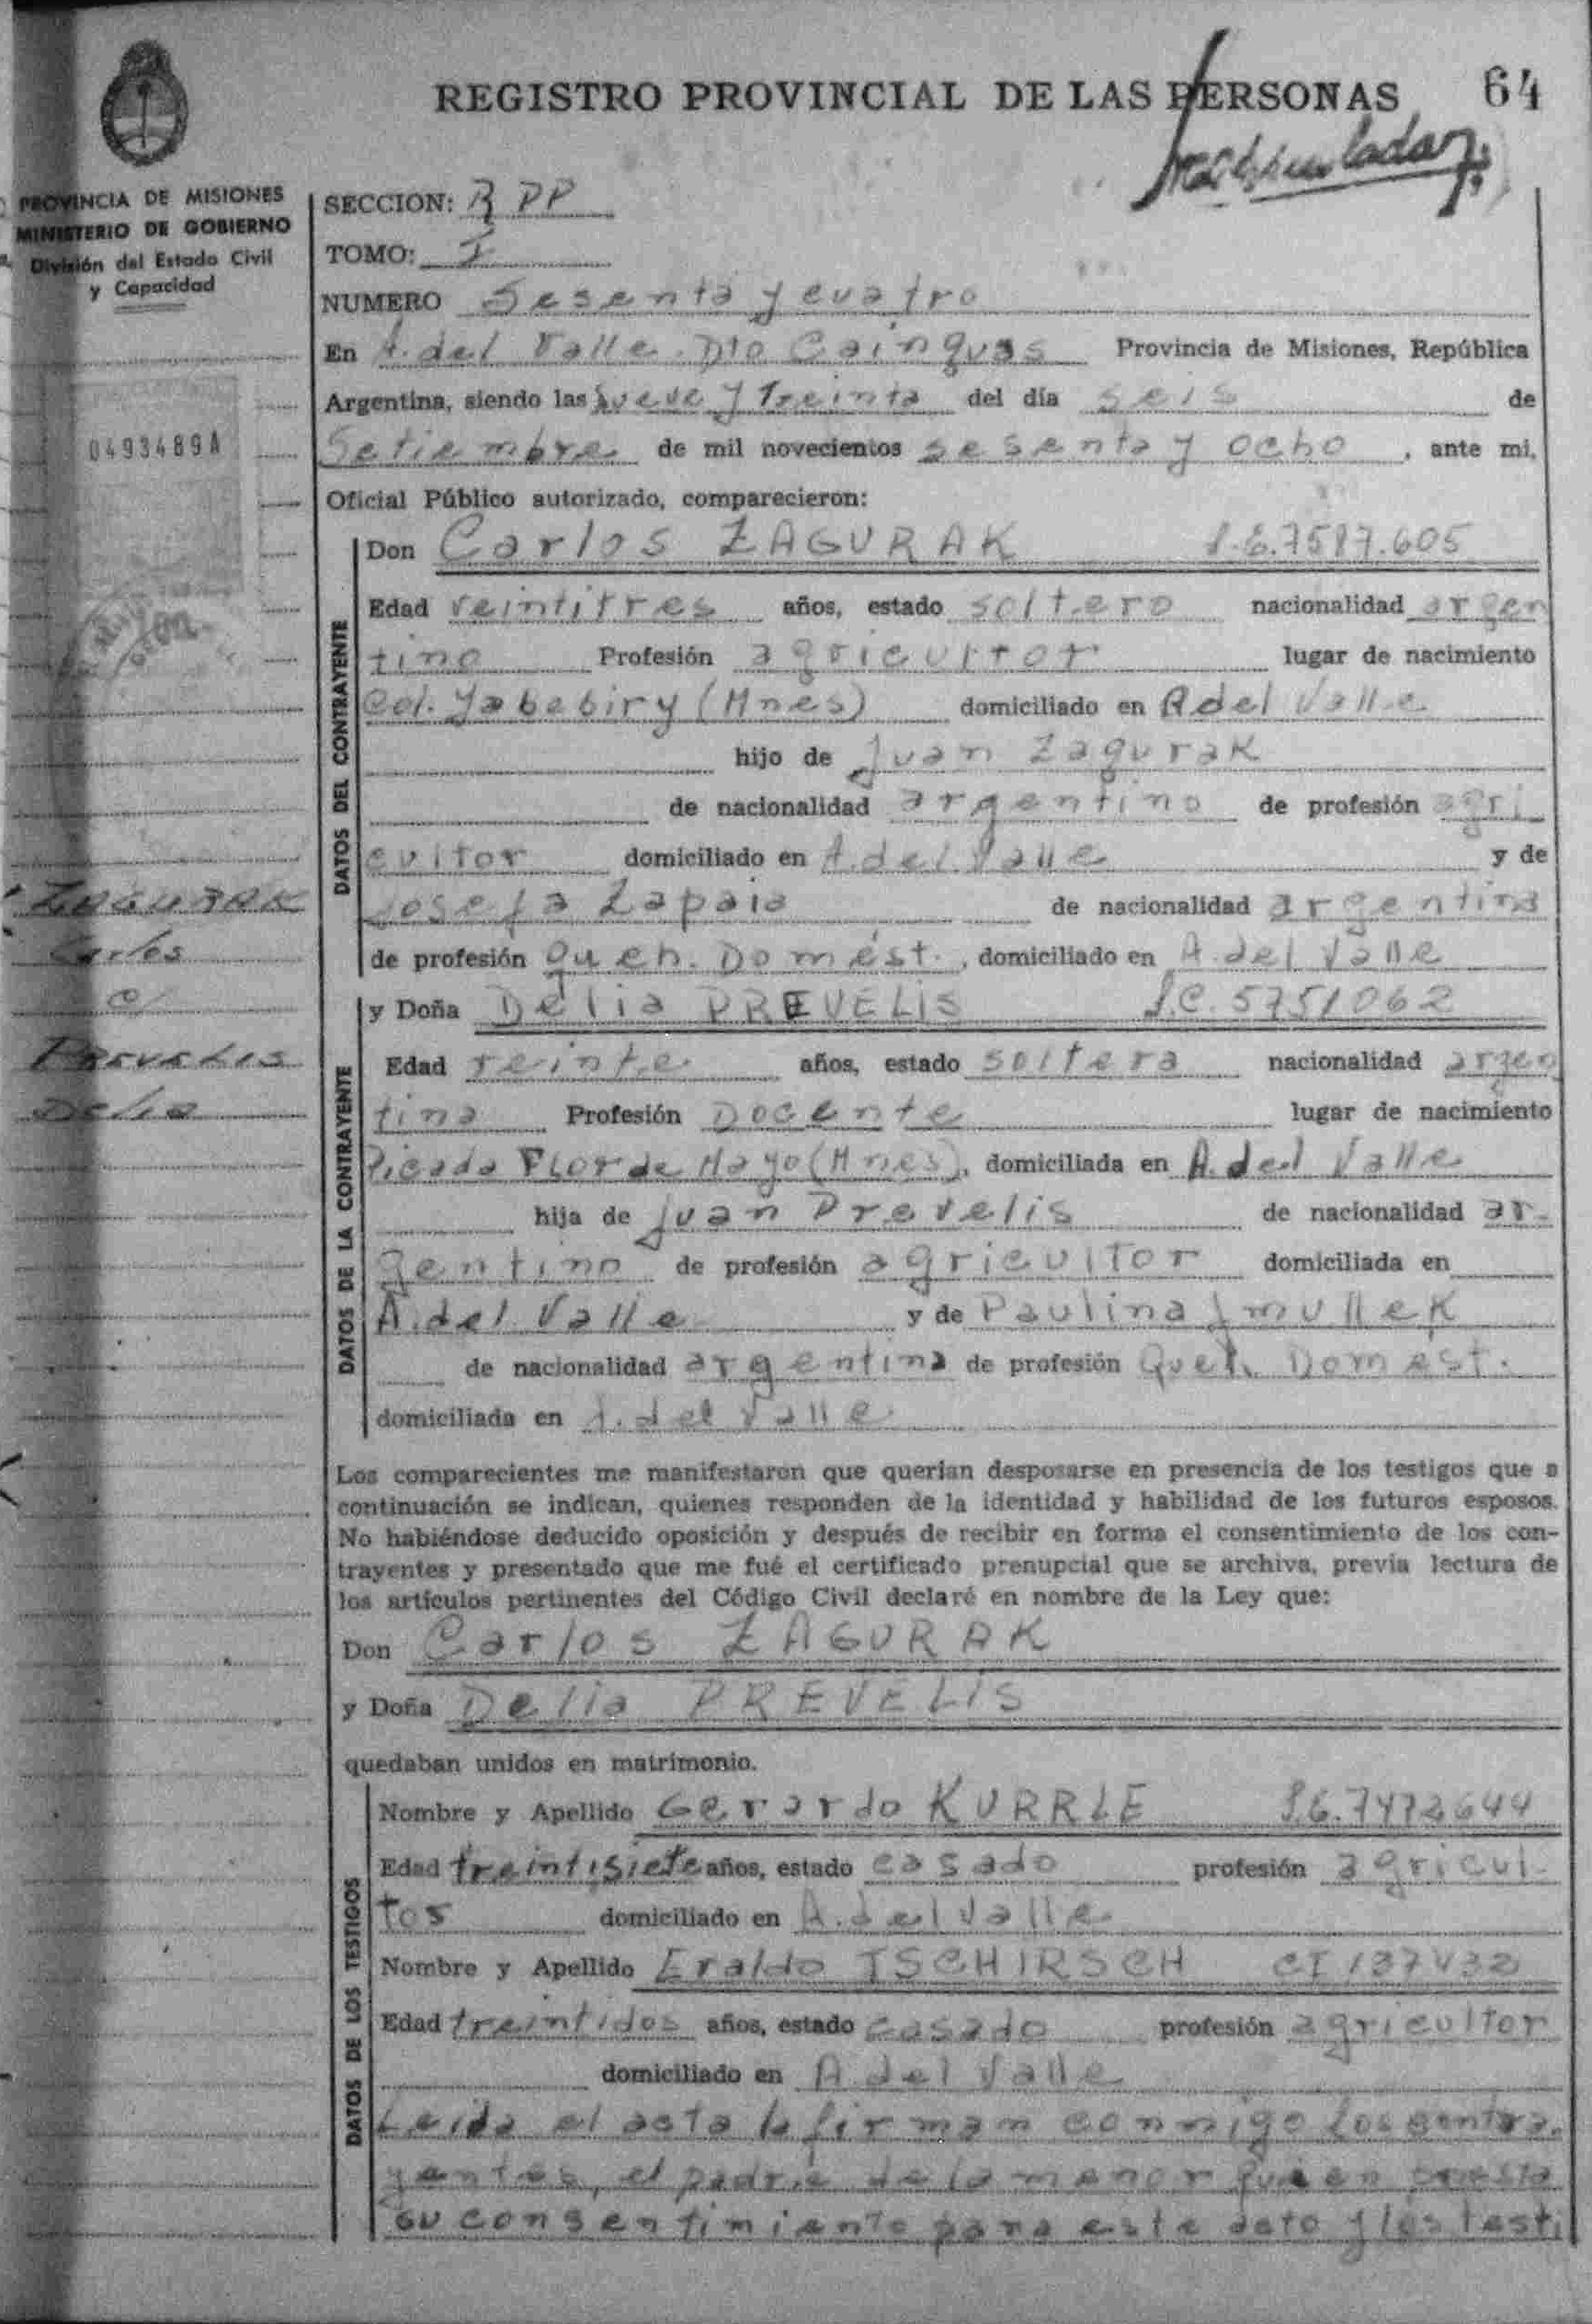 REGISTRO PROVINCIAL DE LAS PERSONAS 64
PROVINCIA DE MISIONES
MINISTERIO DE GOBIERNO
División del Estado Civil
y Capacidad
0493489A
SECCION: R PP
TOMO: I
NUMERO Sesenta y cuatro
En A. del Valle. Dto Cainguas Provincia de Misiones, República
Argentina, siendo las nueve y treinta del día seis de
Setiembre de mil novecientos sesenta y ocho, ante mi,
Oficial Público autorizado, comparecieron:
DATOS DEL CONTRAYENTE
Don Carlos ZAGURAK 7587.605
Edad veintitres años, estado soltero nacionalidad argen
tino Profesión agricultor lugar de nacimiento
Col. Yabebiry (Mnes) domiciliado en A del Valle
hijo de Juan Zagurak
de nacionalidad argentino de profesión agri
cultor domiciliado en A. del Valle y de
Josefa Lapaia de nacionalidad argentina
de profesión Queh. Domést., domiciliado en A. del Valle
ZAGURAK
Carlos
c/
PREVELIS
Delia
DATOS DE LA CONTRAYENTE
y Doña Delia PREVELIS L.C. 5751062
Edad veinte años, estado soltera nacionalidad argen
tina Profesión Docente lugar de nacimiento
Picada Flor de Mayo (Mnes), domiciliada en A. del Valle
hija de Juan Prevelis de nacionalidad ar-
gentino de profesión agricultor domiciliada en
A. del Valle y de Paulina
de nacionalidad argentina de profesión Queh. Domést.
domiciliada en A. del Valle
Los comparecientes me manifestaron que querían desposarse en presencia de los testigos que a
continuación se indican, quienes responden de la identidad y habilidad de los futuros esposos.
No habiéndose deducido oposición y después de recibir en forma el consentimiento de los con-
trayentes y presentado que me fué el certificado prenupcial que se archiva, previa lectura de
los artículos pertinentes del Código Civil declaré en nombre de la Ley que:
Don Carlos ZAGURAK
y Doña Delia PREVELIS
quedaban unidos en matrimonio.
DATOS DE LOS TESTIGOS
Nombre y Apellido Gerardo KURRLE 7472644
Edad treintisiete años, estado casado profesión agricul-
tor domiciliado en A. del Valle
Nombre y Apellido Eraldo TSCHIRSCH CI 137432
Edad treintidos años, estado casado profesión agricultor
domiciliado en A del Valle
Leida el acta la firman conmigo los contra-
yentes, el padre de la menor quien presta
su consentimiento para este acto y los testi